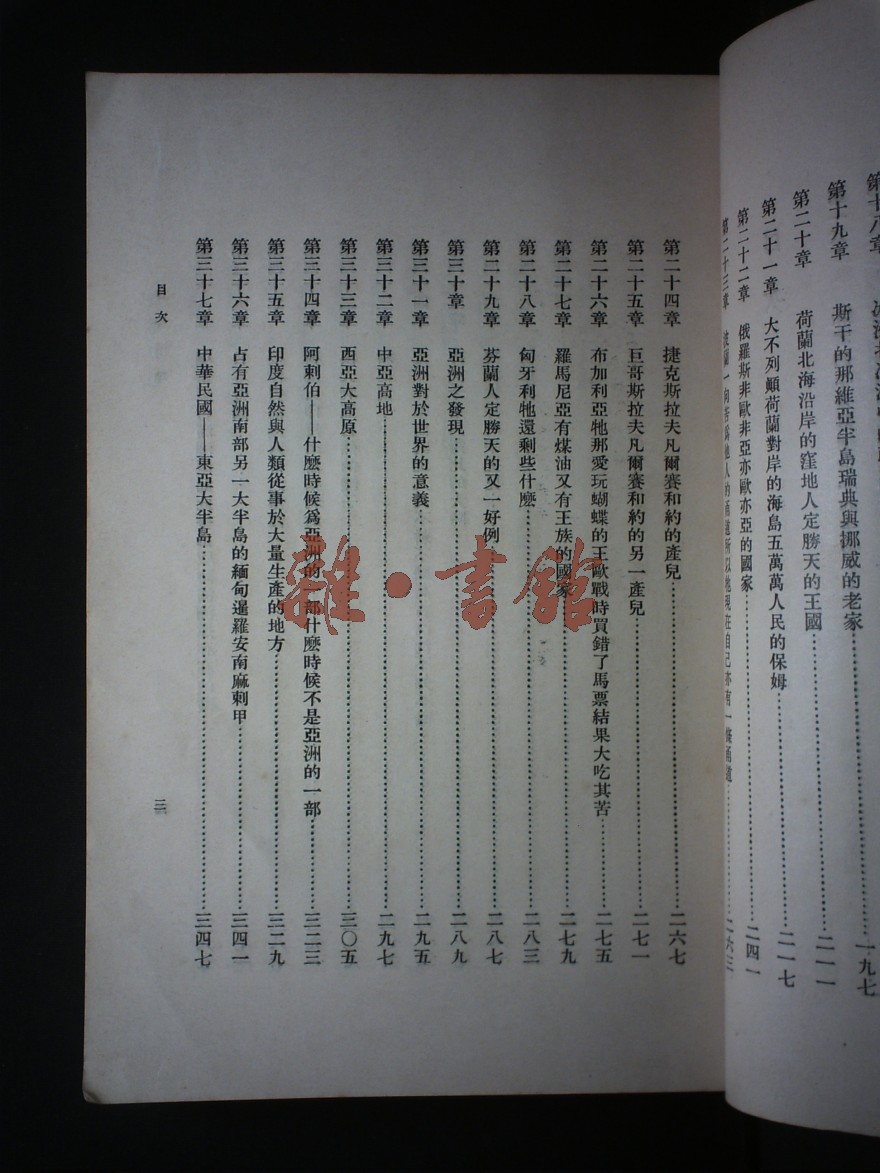 第十九章 斯干的那維亞半島瑞典與挪威的老家
一九七
第二十章 荷蘭北海沿岸的窪地人定勝天的王國
二一一
第二十一章 大不列顛荷蘭對岸的海島五萬萬人民的保姆
二一七
第二十二章 俄羅斯非歐非亞亦歐亦亞的國家
二四一
第二十三章
二六三
第二十四章 捷克斯拉夫凡爾賽和約的產兒……二六七
第二十五章 巨哥斯拉夫凡爾賽和約的另一產兒……二七一
第二十六章 布加利亞牠那愛玩蝴蝶的王歐戰時買錯了馬票結果大吃其苦……二七五
第二十七章 羅馬尼亞有煤油又有王族的國家……二七九
第二十八章 匈牙利牠還剩些什麽……二八三
第二十九章 芬蘭人定勝天的又一好例……二八七
第三十章 亞洲之發現……二八九
第三十一章 亞洲對於世界的意義……二九五
第三十二章 中亞高地……二九七
第三十三章 西亞大高原……三〇五
第三十四章 阿剌伯——什麽時候爲亞洲的一部什麽時候不是亞洲的一部……三二三
第三十五章 印度自然與人類從事於大量生產的地方……三二九
第三十六章 占有亞洲南部另一大半島的緬甸暹羅安南麻剌甲……三四一
第三十七章 中華民國——東亞大半島……三四七
目次
三
雜·書館